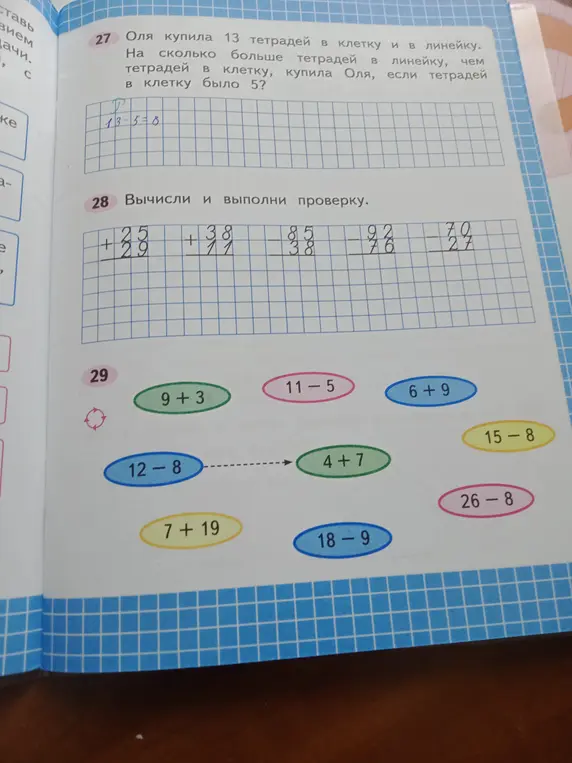 ставь
ием
ачи.
, с
ке
а-
е
,
27 Оля купила 13 тетрадей в клетку и в линейку.
На сколько больше тетрадей в линейку, чем
тетрадей в клетку, купила Оля, если тетрадей
в клетку было 5?
13-5=8
28 Вычисли и выполни проверку.
+ 25 + 38 - 85 - 92 - 70
29 11 38 76 27
29
9 + 3 11 − 5 6 + 9
15 − 8
12 − 8 4 + 7
26 − 8
7 + 19 18 − 9